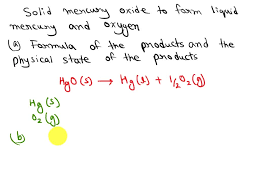 Solid mercury oxide to form liquid
mercury and oxygen
(a) Formula of the products and the
physical state of the products
HgO(s) → Hg(s) + 1/2 O₂(g)
Hg(s)
O₂(g)
(b)